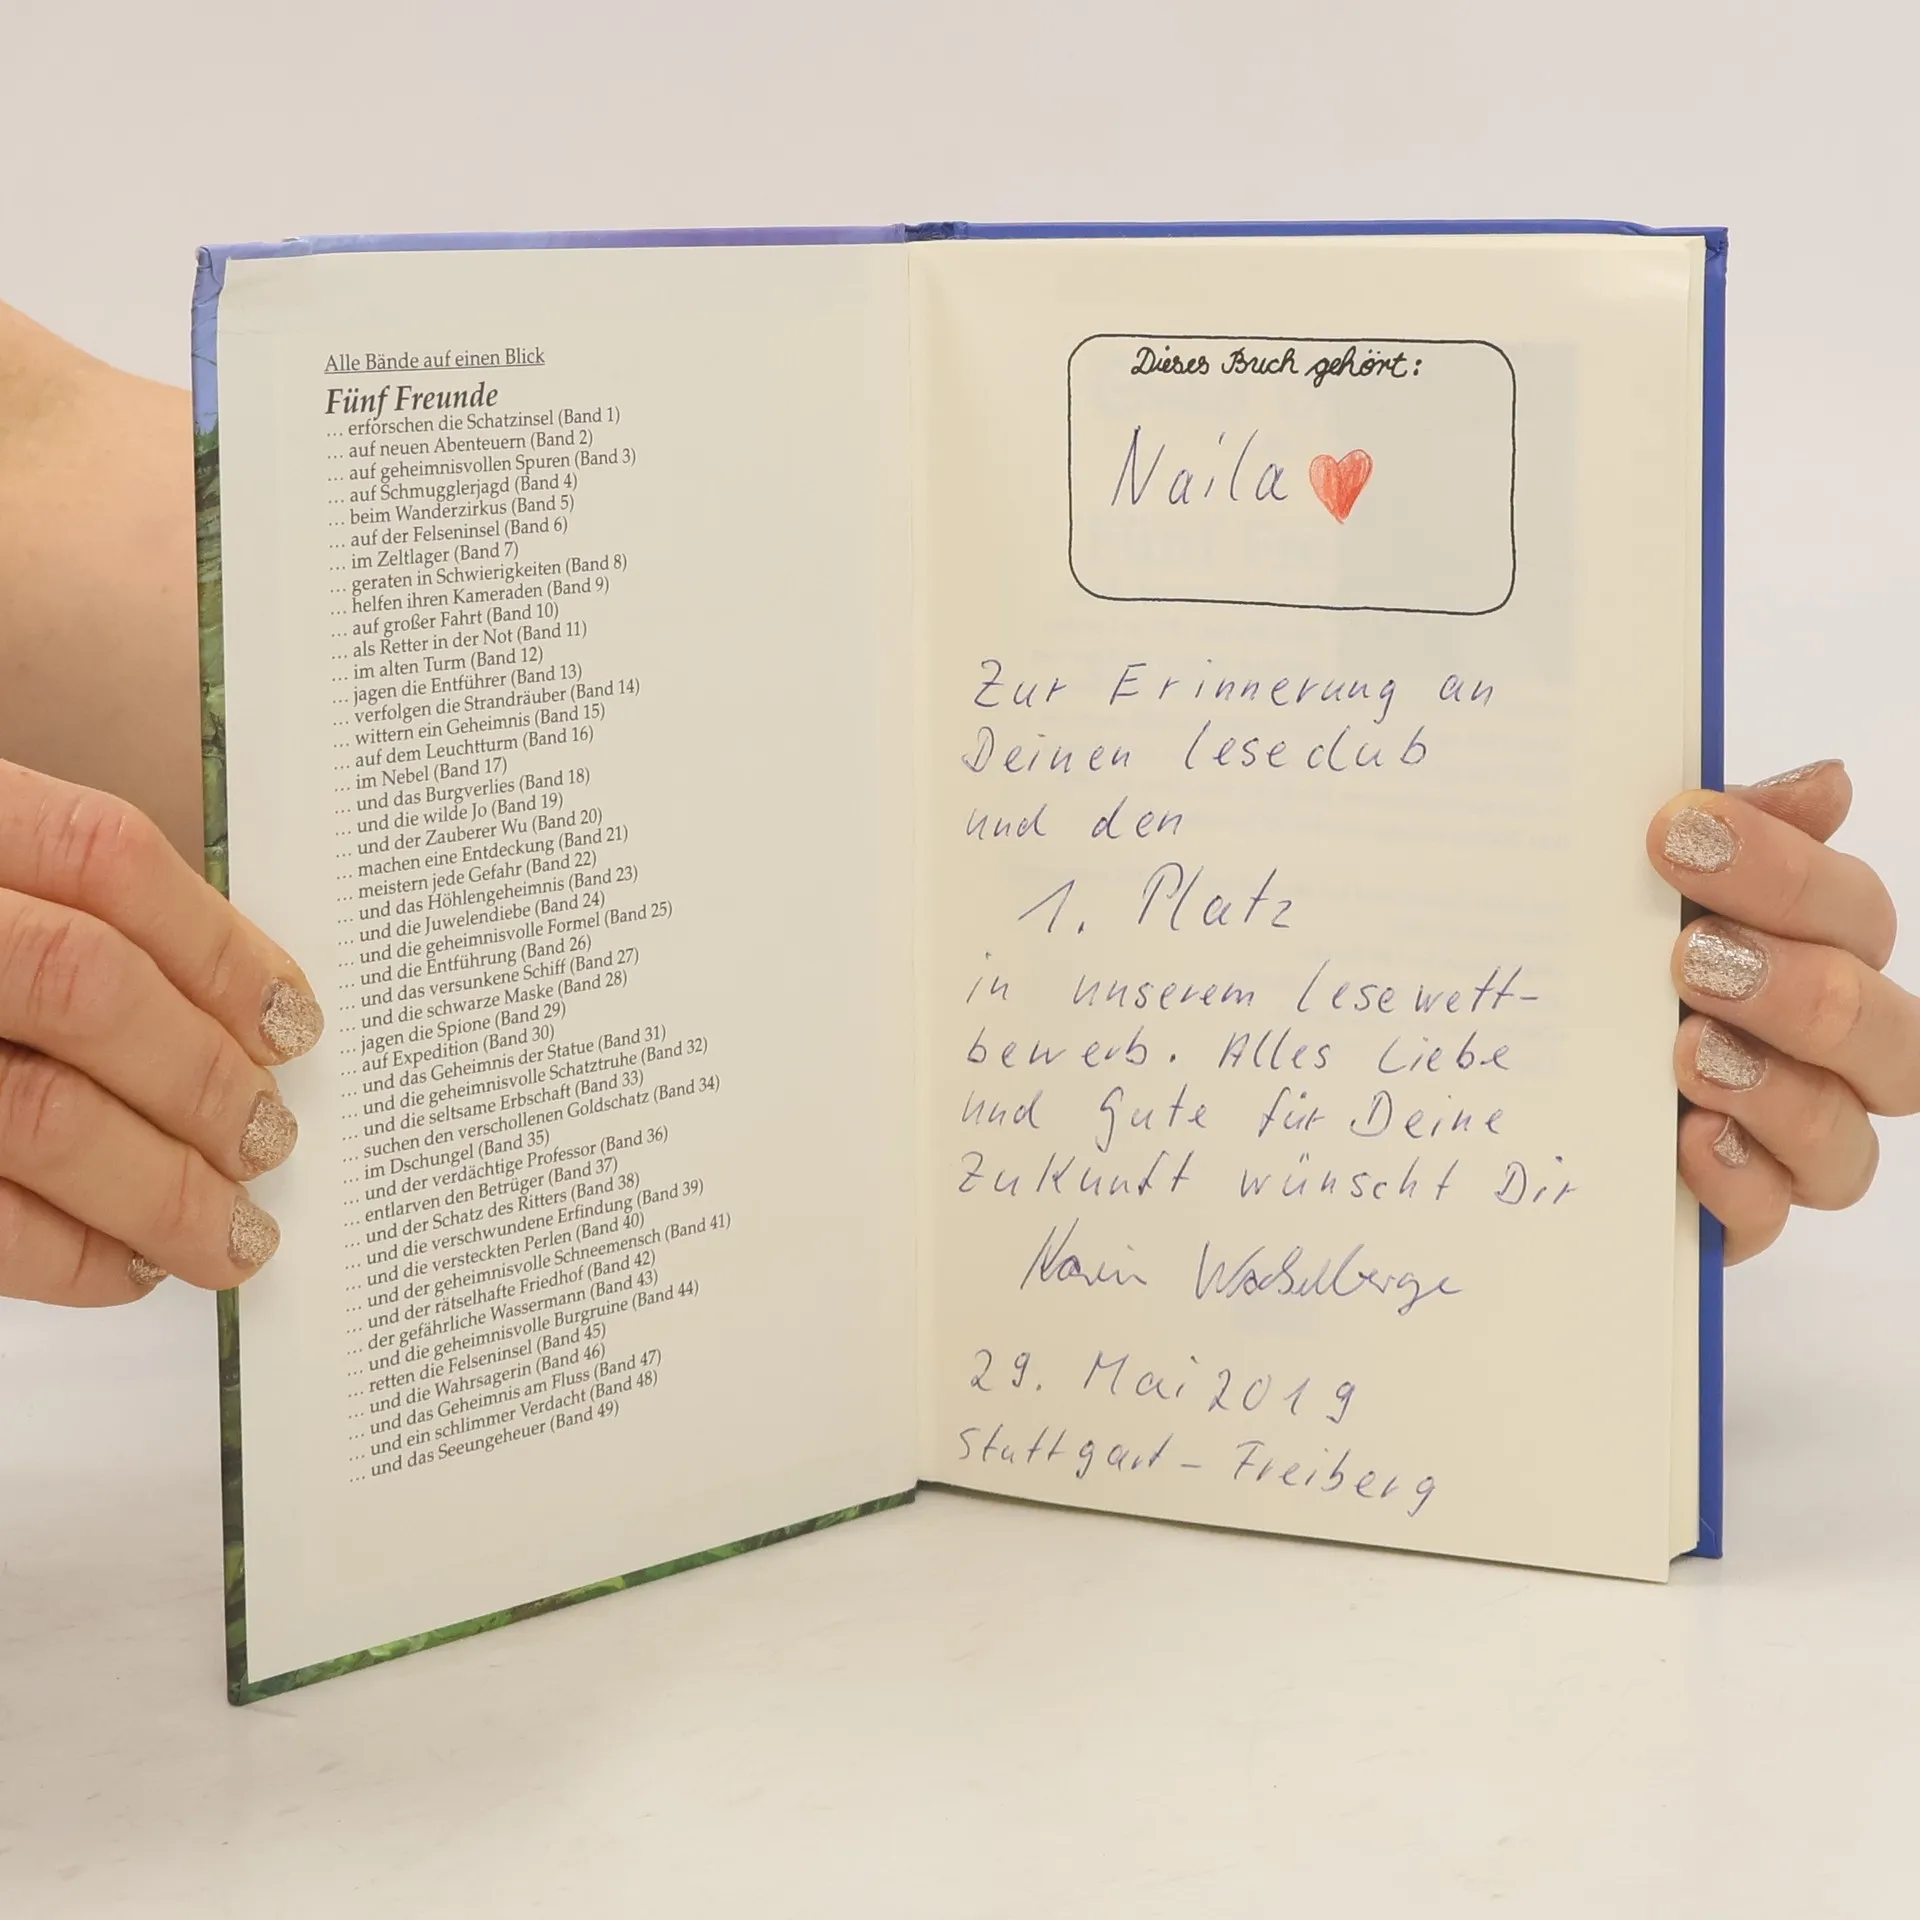 Alle Bände auf einen Blick
Fünf Freunde
… erforschen die Schatzinsel (Band 1)
… auf neuen Abenteuern (Band 2)
… auf geheimnisvollen Spuren (Band 3)
… auf Schmugglerjagd (Band 4)
… beim Wanderzirkus (Band 5)
… auf der Felseninsel (Band 6)
… im Zeltlager (Band 7)
… geraten in Schwierigkeiten (Band 8)
… helfen ihren Kameraden (Band 9)
… auf großer Fahrt (Band 10)
… als Retter in der Not (Band 11)
… im alten Turm (Band 12)
… jagen die Entführer (Band 13)
… verfolgen die Strandräuber (Band 14)
… wittern ein Geheimnis (Band 15)
… auf dem Leuchtturm (Band 16)
… im Nebel (Band 17)
… und das Burgverlies (Band 18)
… und die wilde Jo (Band 19)
… und der Zauberer Wu (Band 20)
… machen eine Entdeckung (Band 21)
… meistern jede Gefahr (Band 22)
… und das Höhlengeheimnis (Band 23)
… und die Juwelendiebe (Band 24)
… und die geheimnisvolle Formel (Band 25)
… und die Entführung (Band 26)
… und das versunkene Schiff (Band 27)
… und die schwarze Maske (Band 28)
… jagen die Spione (Band 29)
… auf Expedition (Band 30)
… und das Geheimnis der Statue (Band 31)
… und die geheimnisvolle Schatztruhe (Band 32)
… und die seltsame Erbschaft (Band 33)
… suchen den verschollenen Goldschatz (Band 34)
… im Dschungel (Band 35)
… und der verdächtige Professor (Band 36)
… entlarven den Betrüger (Band 37)
… und der Schatz des Ritters (Band 38)
… und die verschwundene Erfindung (Band 39)
… und die versteckten Perlen (Band 40)
… und der geheimnisvolle Schneemensch (Band 41)
… und der rätselhafte Friedhof (Band 42)
… der gefährliche Wassermann (Band 43)
… und die geheimnisvolle Burgruine (Band 44)
… retten die Felseninsel (Band 45)
… und die Wahrsagerin (Band 46)
… und das Geheimnis am Fluss (Band 47)
… und ein schlimmer Verdacht (Band 48)
… und das Seeungeheuer (Band 49)
Dieses Buch gehört:
Naila
Zur Erinnerung an
Deinen Leseclub
und den
1. Platz
in unserem Lesewett-
bewerb. Alles Liebe
und Gute für Deine
Zukunft wünscht Dir
Karin
29. Mai 2019
Stuttgart - Freiberg